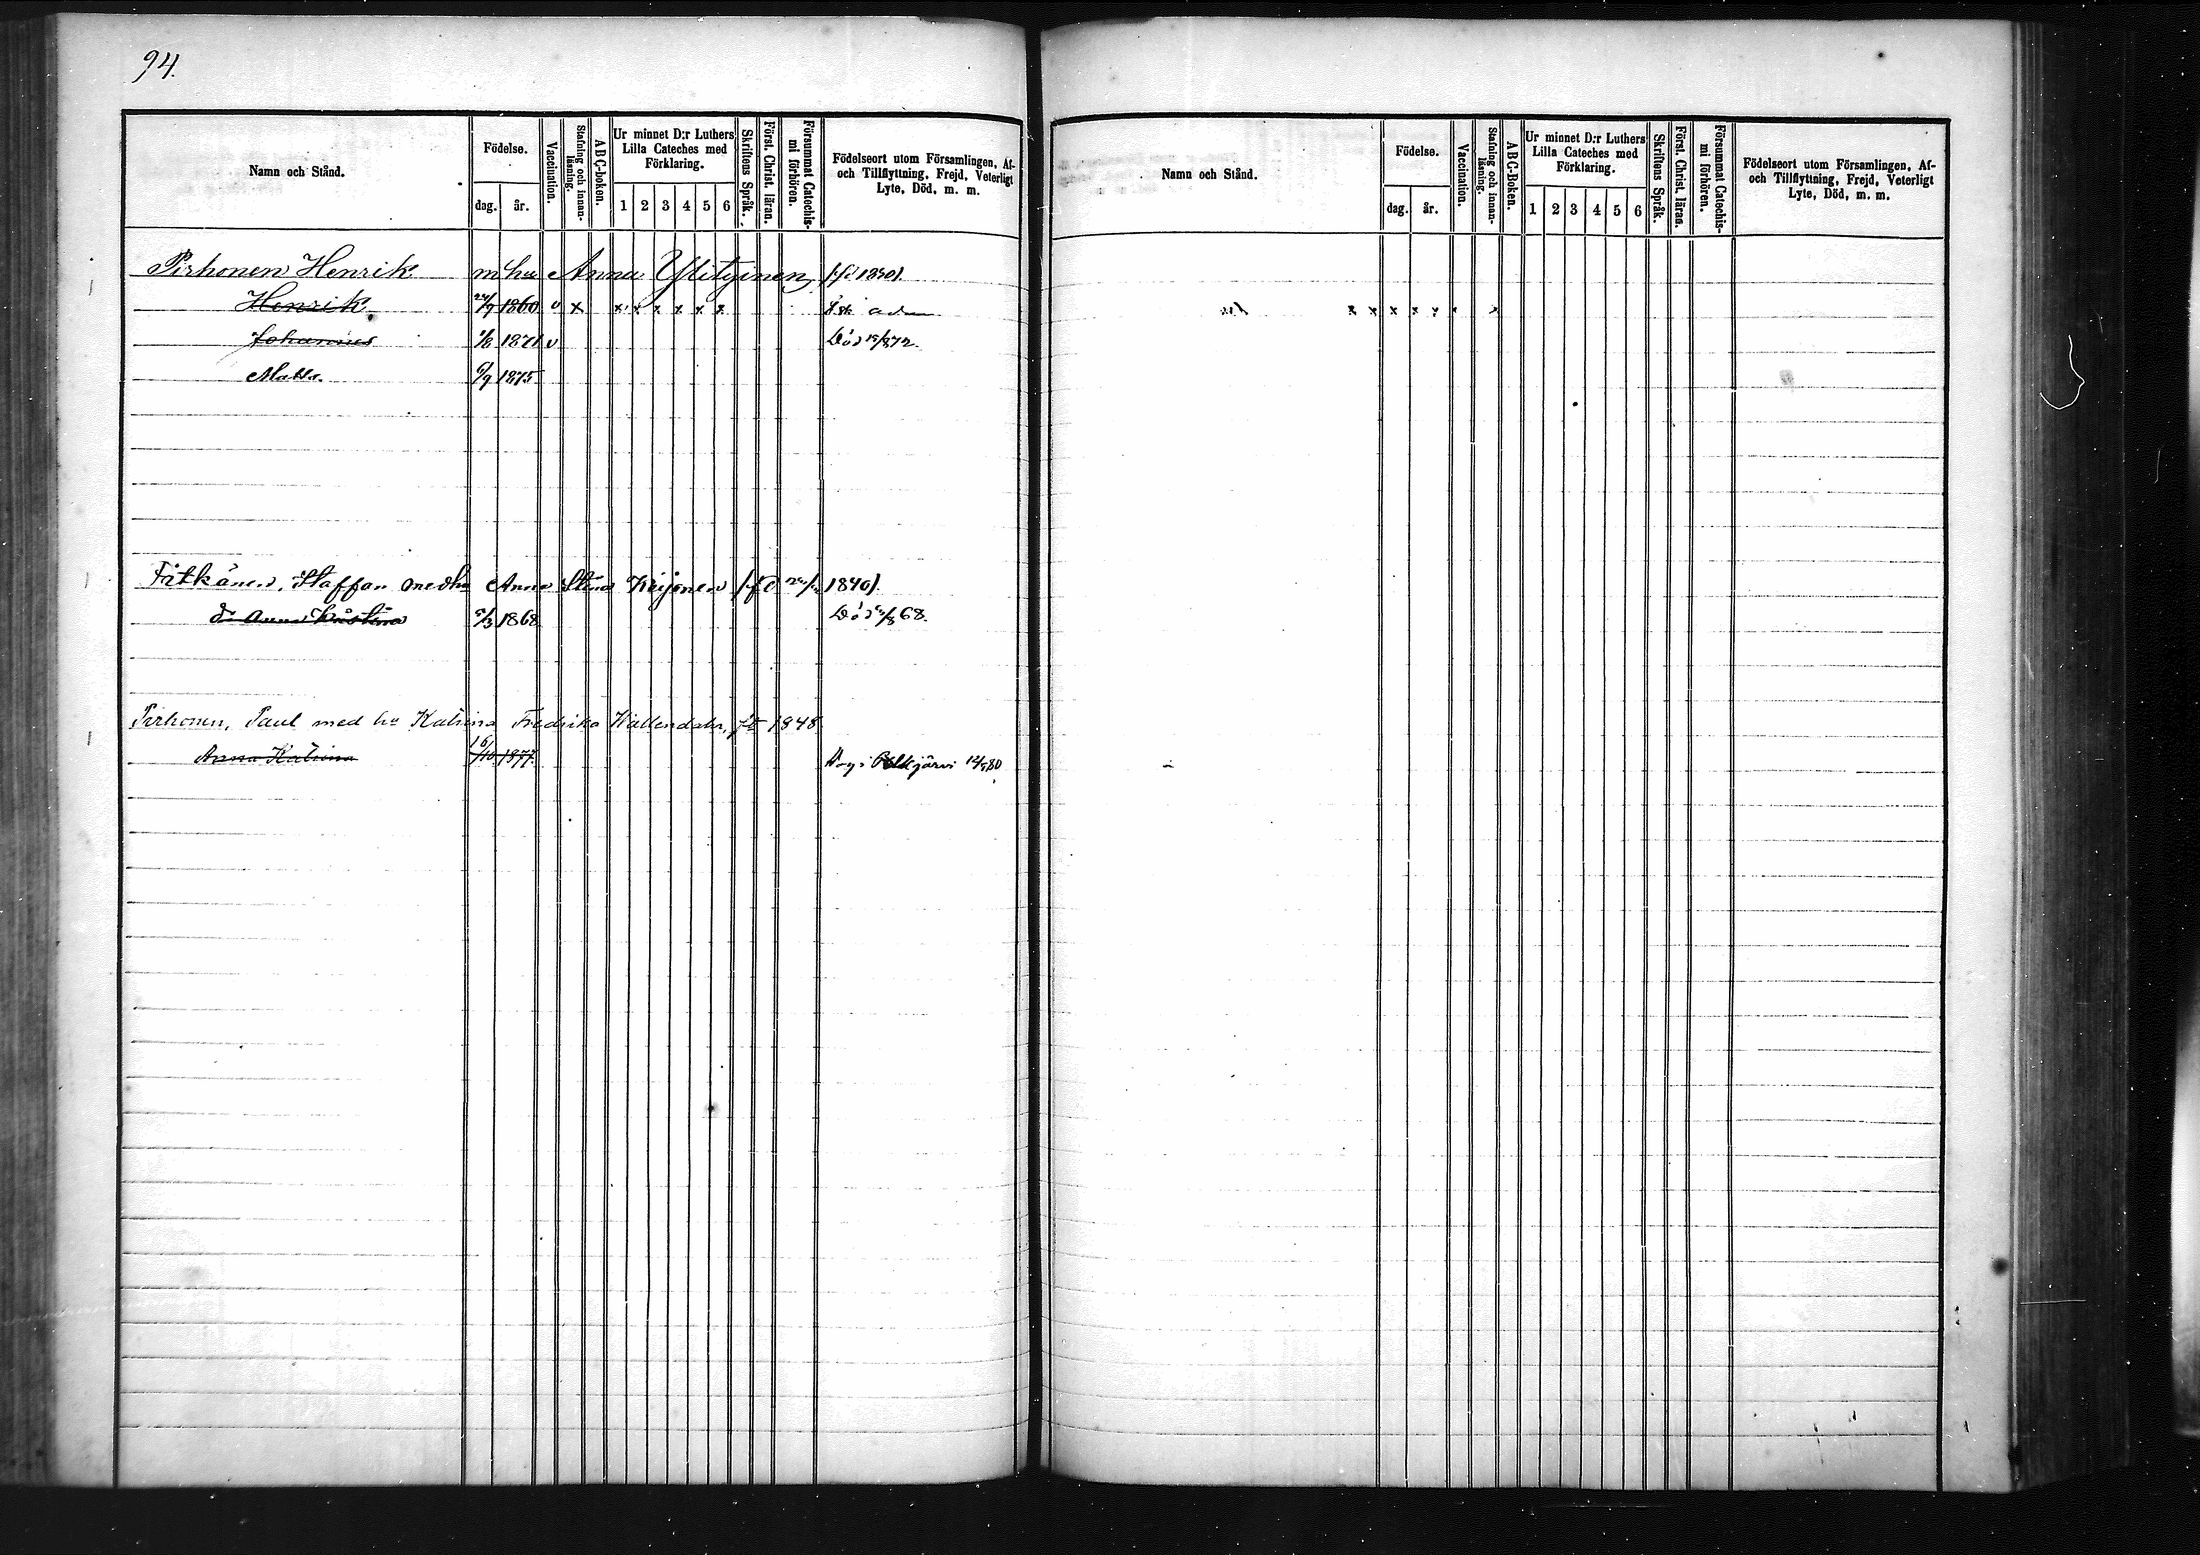 94.
Namn och Stånd.
Födelse.
dag.
år.
Vaccination.
Stafning och innan-
läsning.
ABC-boken.
Ur minnet D:r Luthers
Lilla Cateches med
Förklaring.
1 2 3 4 5 6
Skriftens Språk.
Först. Christ. läran.
Försummat Catechis-
mi förhören.
Födelseort utom Församlingen, Af-
och Tillflyttning, Frejd, Veterligt
Lyte, Död, m. m.
Pirhonen Henrik m hu Anna Ylityinen
Henrik 1860 v x x x x x x x
Johannes 1/8 1871 v Död 15/8 72.
Matts. 6/9 1875
Staffan med hu Anna Stina Keijonen 1840).
Anna Kristina 5/3 1868 Död 68.
Pirhonen, Paul med hu Katrina Fredrika född 1848
Anna Katrina 16/10 1877
12/5 80
Namn och Stånd.
Födelse.
dag.
år.
Vaccination.
Stafning och innan-
läsning.
ABC-Boken.
Ur minnet D:r Luthers
Lilla Cateches med
Förklaring.
1 2 3 4 5 6
Skriftens Språk.
Först. Christ. läran.
Försummat Catechis-
mi förhören.
Födelseort utom Församlingen, Af-
och Tillflyttning, Frejd, Veterligt
Lyte, Död, m. m.